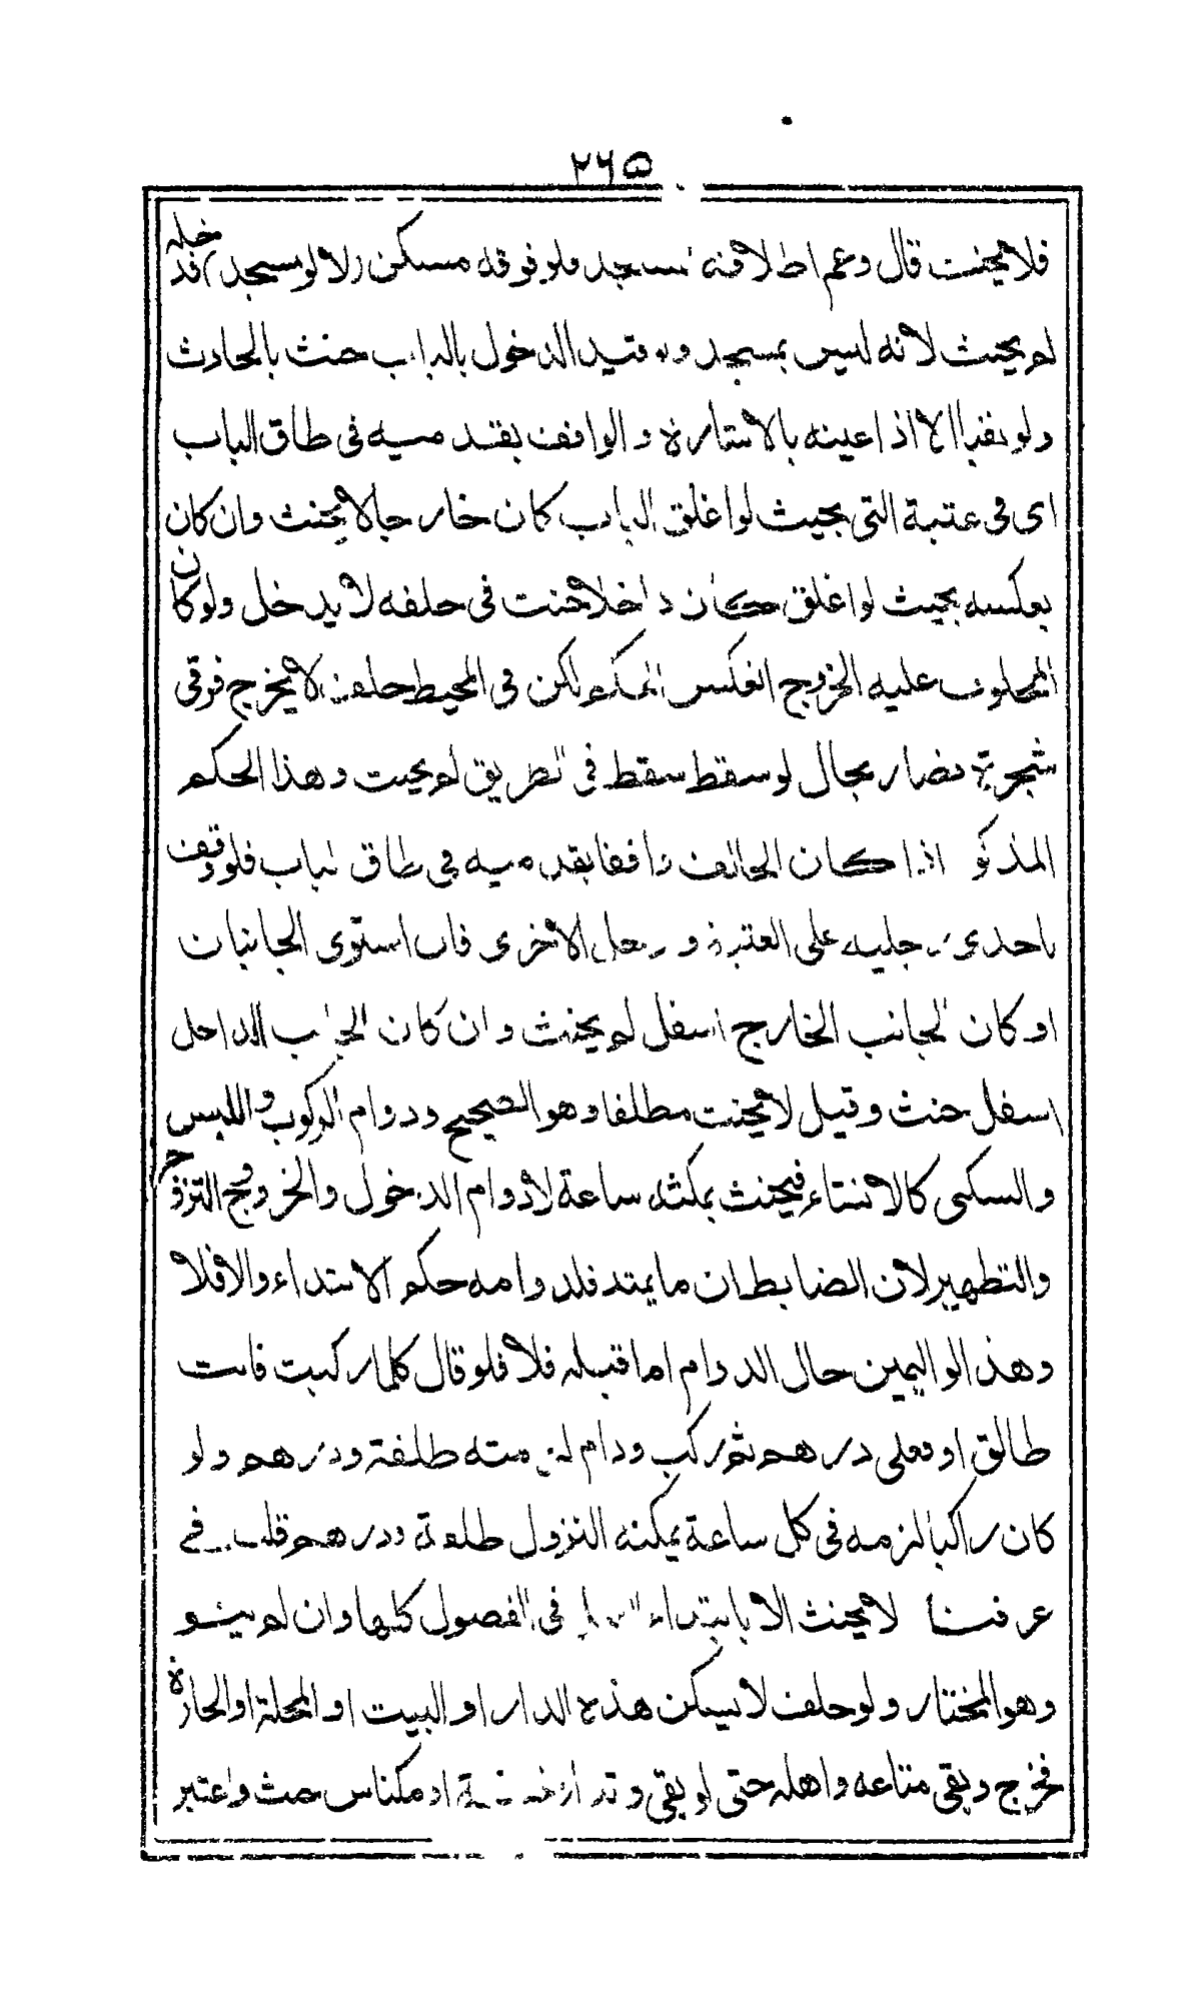 ٢٦٥
فلا يحنث قال وعم اطلاقه مسجد فلو فوقه مسكن فدخله
لم يحنث لانه ليس بمسجد ولو قيد الدخول بالباب حنث بالحادث
ولو نقبا الا اذا عينه بالاشارة والواقف بقدميه فى طاق الباب
اى فى عتبة التى بحيث لو اغلق الباب كان خارجا لا يحنث وان كان
بعكسه بحيث لو اغلق كان داخلا حنث فى حلفه لا يدخل ولو كان
المحلوف عليه الخروج انعكس الحكم لكن فى المحيط حلف لا يخرج فرقى
شجرة فصار بحال لو سقط سقط فى الطريق لم يحنث وهذا الحكم
المذكو اذا كان الحالف واقفا بقدميه فى طاق الباب فلو وقف
باحدى رجليه على العتبة و الاخرى فان استوى الجانبان
او كان الجانب الخارج اسفل لم يحنث وان كان الجانب الداخل
اسفل حنث وقيل لا يحنث مطلقا وهو الصحيح ودوام الركوب واللبس
والسكنى كالانشاء فيحنث بمكثه ساعة لا دوام الدخول والخروج والتزوج
والتطهير لان الضابط ان ما يمتد فلدوامه حكم الابتداء والا فلا
وهذا لو اليمين حال الدوام اما قبله فلا فلو قال كلما ركبت فانت
طالق او فعلى درهم ثم ركب ودام لزمته طلقة ودرهم ولو
كان راكبا لزمه فى كل ساعة يمكنه النزول طلقة ودرهم قلت فى
عرفنا لا يحنث الا بابتداء فى الفصول كلها وان لم ينو
وهو المختار ولو حلف لا يسكن هذه الدار او البيت او المحلة او الحارة
فخرج وبقى متاعه واهله حتى لو بقى وتد حنث واعتبر